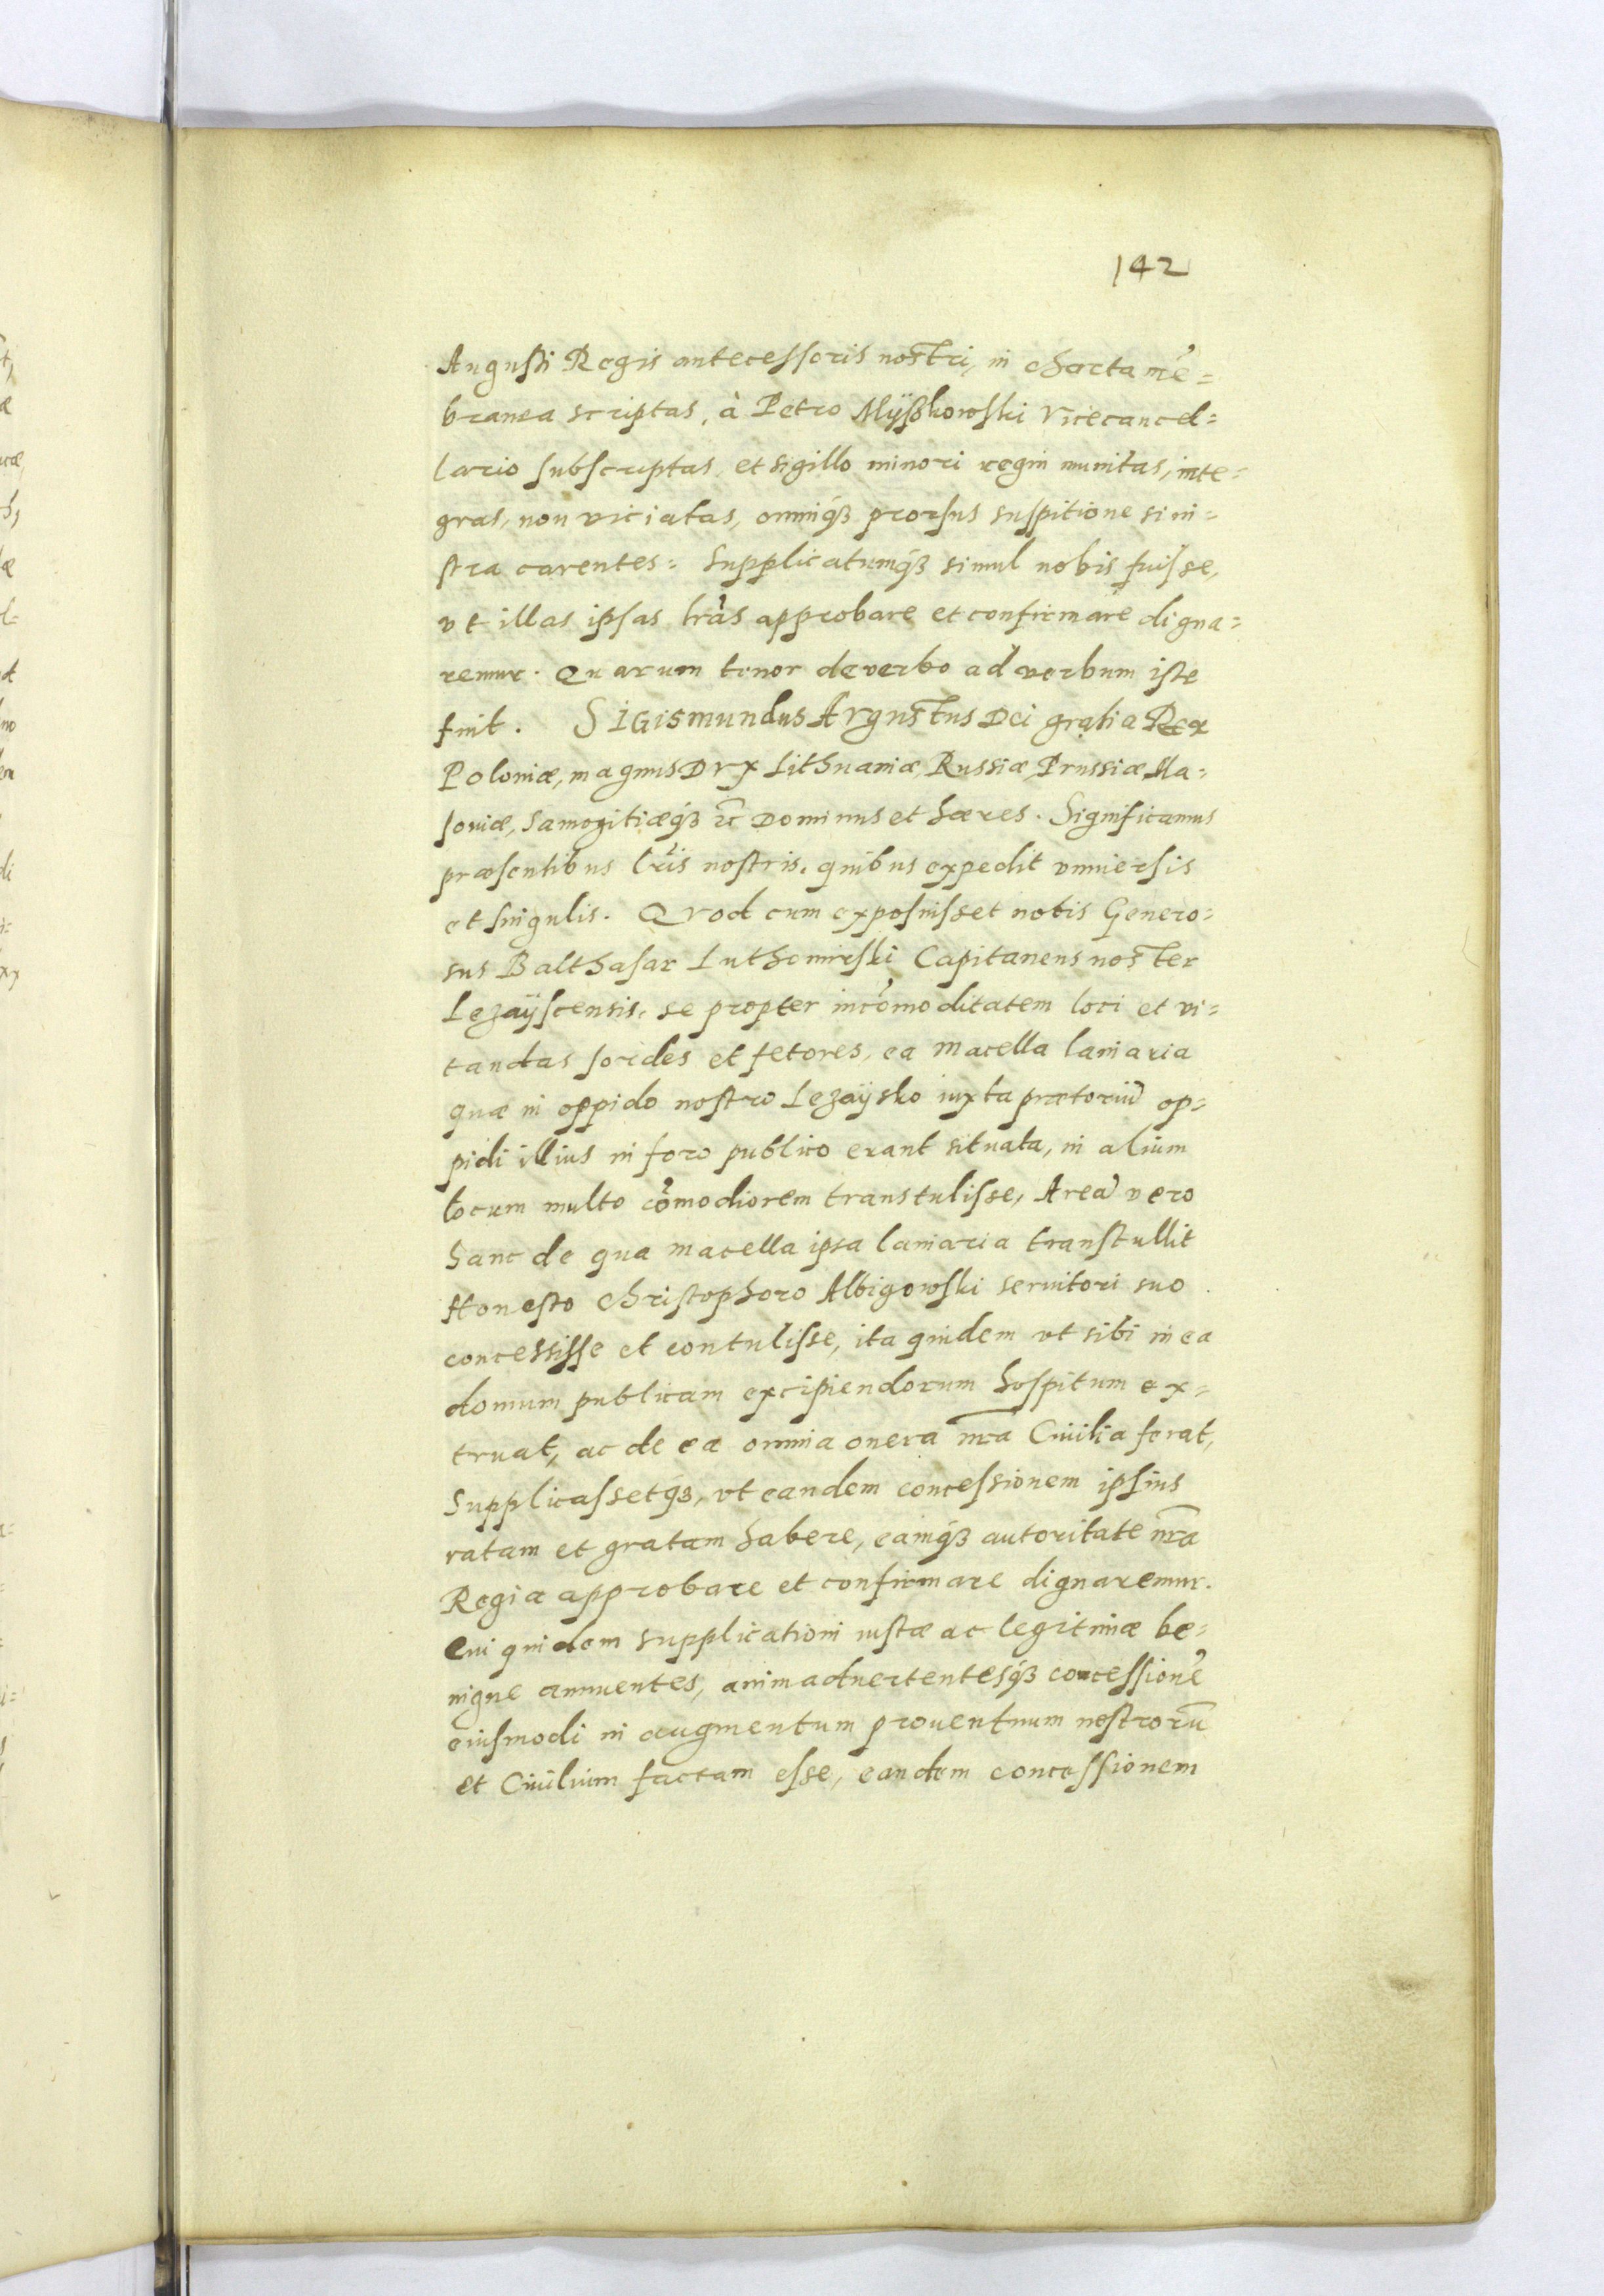 142
Augusti Regis antecessoris nostri, in charta mē=
branea scriptas, à Petro Myßkowski Vicecancel=
lario subscriptas et sigillo minori regni munitas, inte=
gras, non viciatas, omniq́ꝫ prorsus suspitione sini=
stra carentes: Supplicatumq́ꝫ simul nobis fuisse,
vt illas ipsas lrãs approbare et confirmare digna=
remur. Quarum tenor de verbo ad verbum iste
fuit. Sigismundus Avgustus Dei gratia Rex
Poloniæ, magnus Dvx Lithuaniæ, Russiæ, Prussiæ Ma=
soviæ, Samogitiæq́ꝫ ꝛc̃ Dominus et hæres. Significamus
præsentibus lrĩs nostris. quibus expedit vniuersis
et singulis. Qvod cum exposuisset nobis Genero=
sus Balthasar Luthomirski Capitaneus noster
Lezayscensis, se propter incõmoditatem loci et vi=
tandas sordes et fetores, ea macella laniaria
quæ in oppido nostro Lezaysko iuxta prætoriũ op=
pidi illius in foro publico erant situata, in alium
locum multo cõmodiorem transtulisse, Areã vero
hanc de qua macella ipsa laniaria transtullit
Honesto Christophoro Albigowski seruitori suo
concessisse et contulisse, ita quidem vt sibi in ea
domum publicam excipiendorum hospitum ex=
truat, ac de ea omnia onera nr̃a Ciuilia ferat,
Supplicassetq́ꝫ, vt eandem concessionem ipsius
ratam et gratam habere, eamq́ꝫ autoritate nr̃a
Regia approbare et confirmare dignaremur.
Cui quidem supplicationi iustæ ac legitimæ be=
nigne annuentes, animaduertentesq́ꝫ concessionẽ
eiusmodi in augmentum prouentuum nostrorũ
et Ciuilium factam esse, eandem concessionem